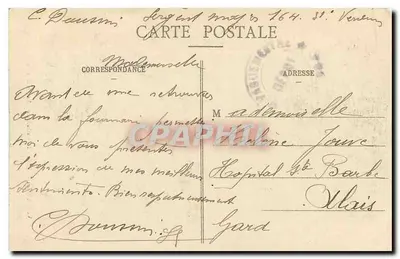 C. Doussin Sergent 164
CARTE POSTALE
CORRESPONDANCE
ADRESSE
Mademoiselle
Avant de me retrouver
dans la fournaise permettez
moi de vous présenter
l'expression de mes meilleurs
sentiments. Bien respectueusement
C. Doussin
M ademoiselle
Jouve
Hopital Ste Barbe
Alais
Gard
CPARAMA